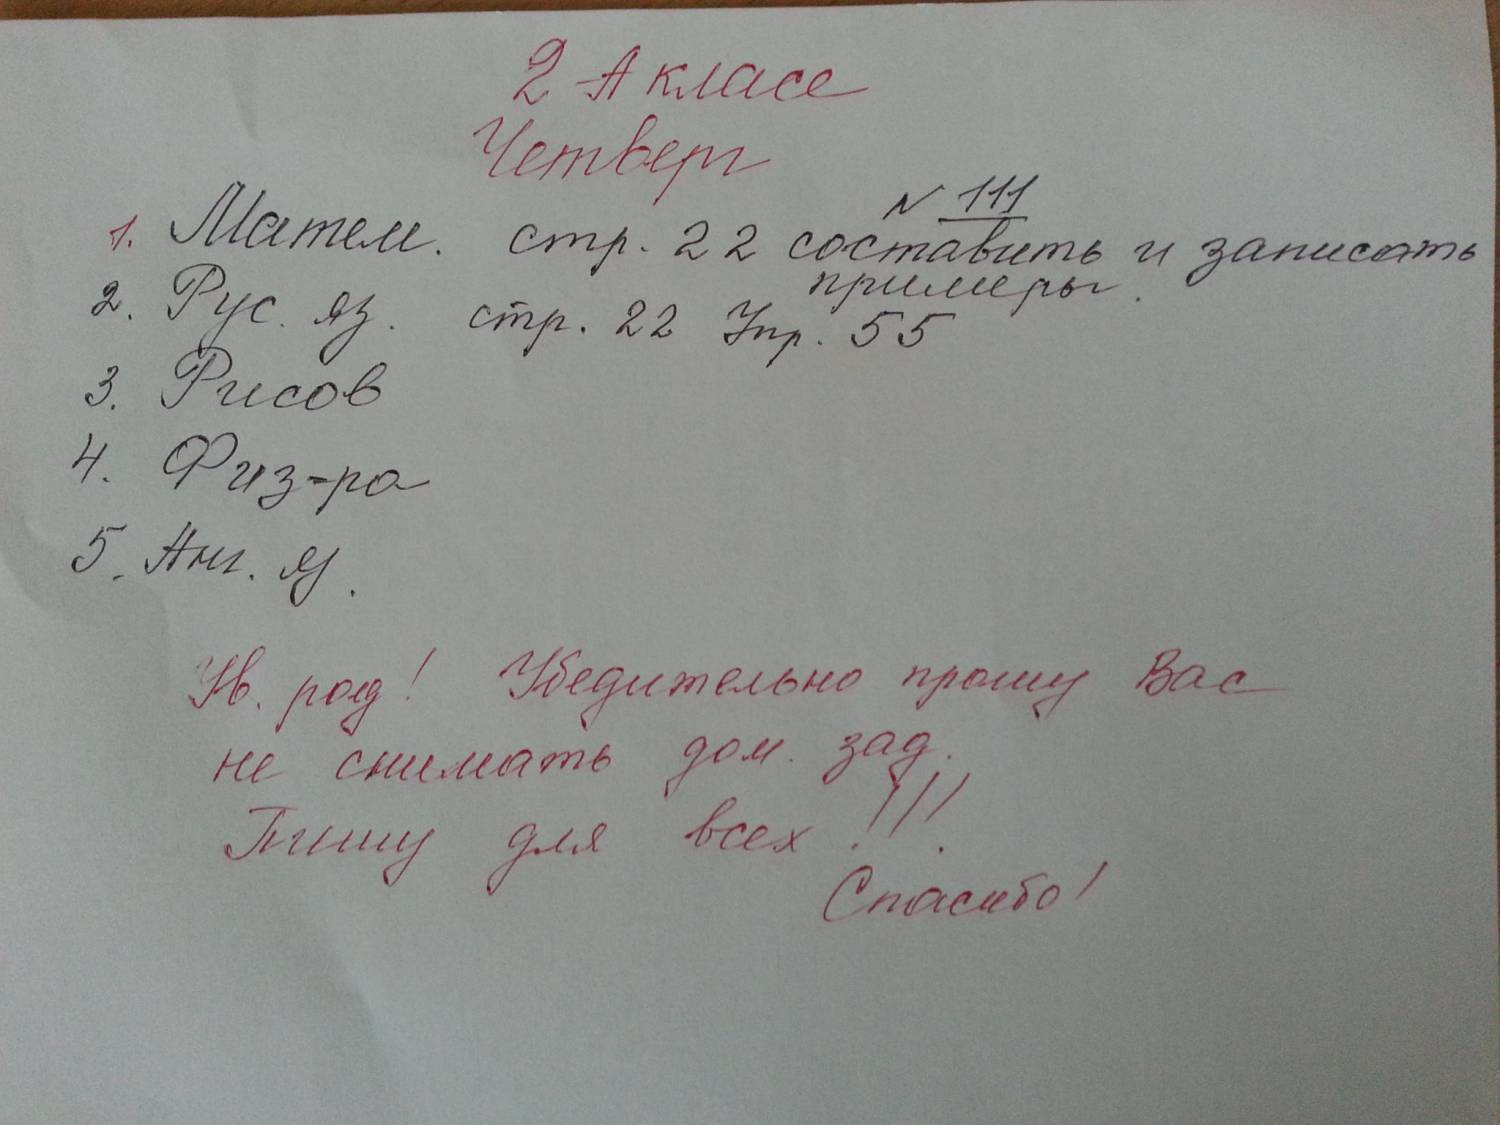 2 А класс
Четверг
N 111
1. Матем. стр. 22 составить и записать
примеры.
2. Рус. яз. стр. 22 Упр. 55
3. Рисов
4. Физ-ра
5. Анг. яз.
Ув. род! Убедительно прошу Вас
не снимать дом. зад.
Пишу для всех!!!
Спасибо!